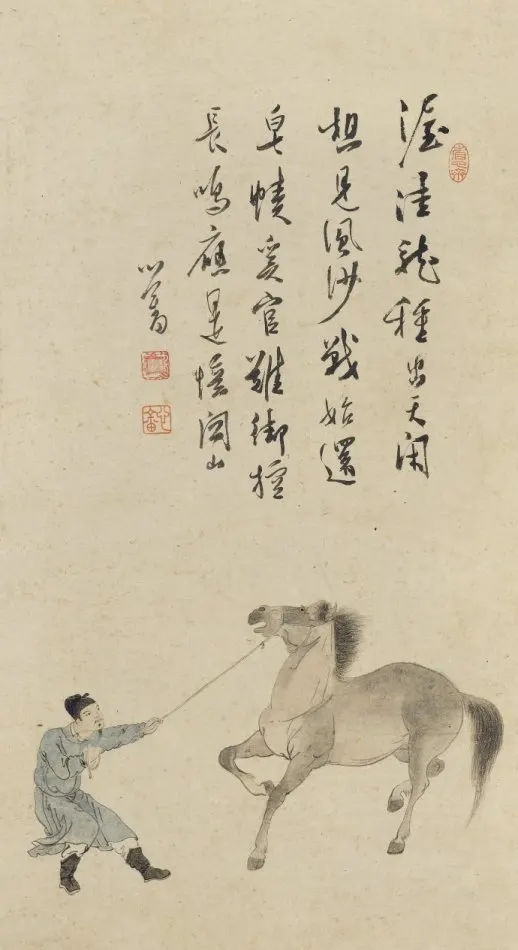 渥洼龍種出天閑
想見風沙戰始還
皁幘奚官難御控
長鳴應是憶關山
心畬